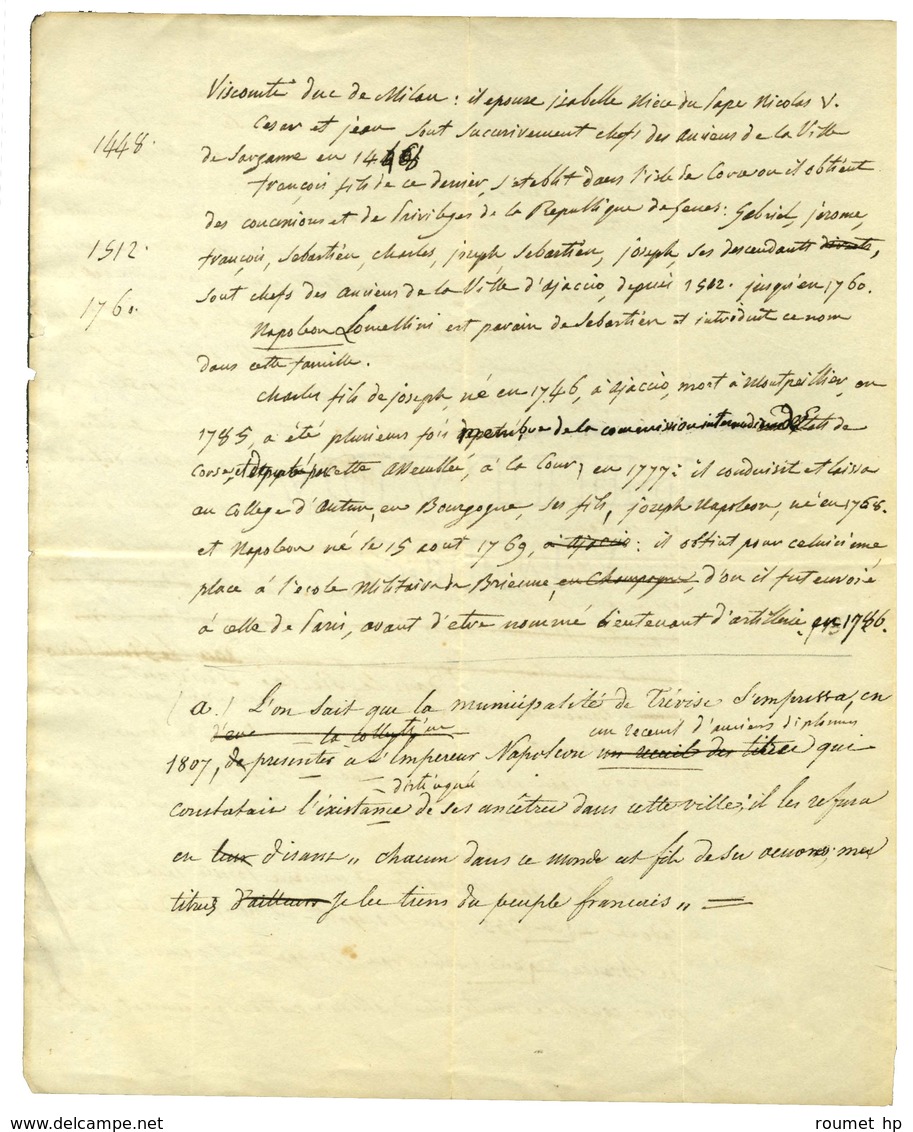 Viscomti duc de Milan : il epouse isabelle Niéce du Pape Nicolas V.
Cesar et jean sont successivement chefs des anciens de la Ville
1448.
de Sarzanne en 1448
françois fils de ce dernier, s'etablit dans l'isle de Corse ou il obtient
des concessions et de Privileges de la Republique de Genes : Gabriel, jerome,
1512.
françois, Sebastien, Charles, joseph, Sebastien, joseph, ses descendants directs,
1760.
sont chefs des anciens de la Ville d'ajaccio, depuis 1512. jusqu'en 1760.
Napoleon Lomellini est parain de Sebastien et introduit ce nom
dans cette famille.
Charles fils de joseph, né en 1746, à ajaccio, mort à Montpellier, en
1785, a été plusieurs fois membre de la commission intermediaire des Etats de
Corse, et député par cette assemblée, à la Cour, en 1777 : il conduisit et laissa
au College d'Autun, en Bourgogne, ses fils, joseph Napoleon, né en 1768.
et Napoleon né le 15 aout 1769, à ajaccio : il obtint pour celui-ci une
place à l'école Militaire de Brienne, en Champagne, d'ou il fut envoié
à celle de Paris, avant d'etre nommé lieutenant d'artillerie en 1786.
(a.) L'on sait que la municipalité de Trévise s'empressa, en
la collection un recueil d'anciens diplomes
1807, de presenter a l'Empereur Napoleon un recueil des titres qui
distingué
constatait l'existance de ses ancêtres dans cette ville ; il les refusa
en leur disant „ chacun dans ce monde est fils de ses oeuvres, mes
titres d'ailleurs Je les tiens du peuple francais „ =
www.delcampe.net
roumet hp